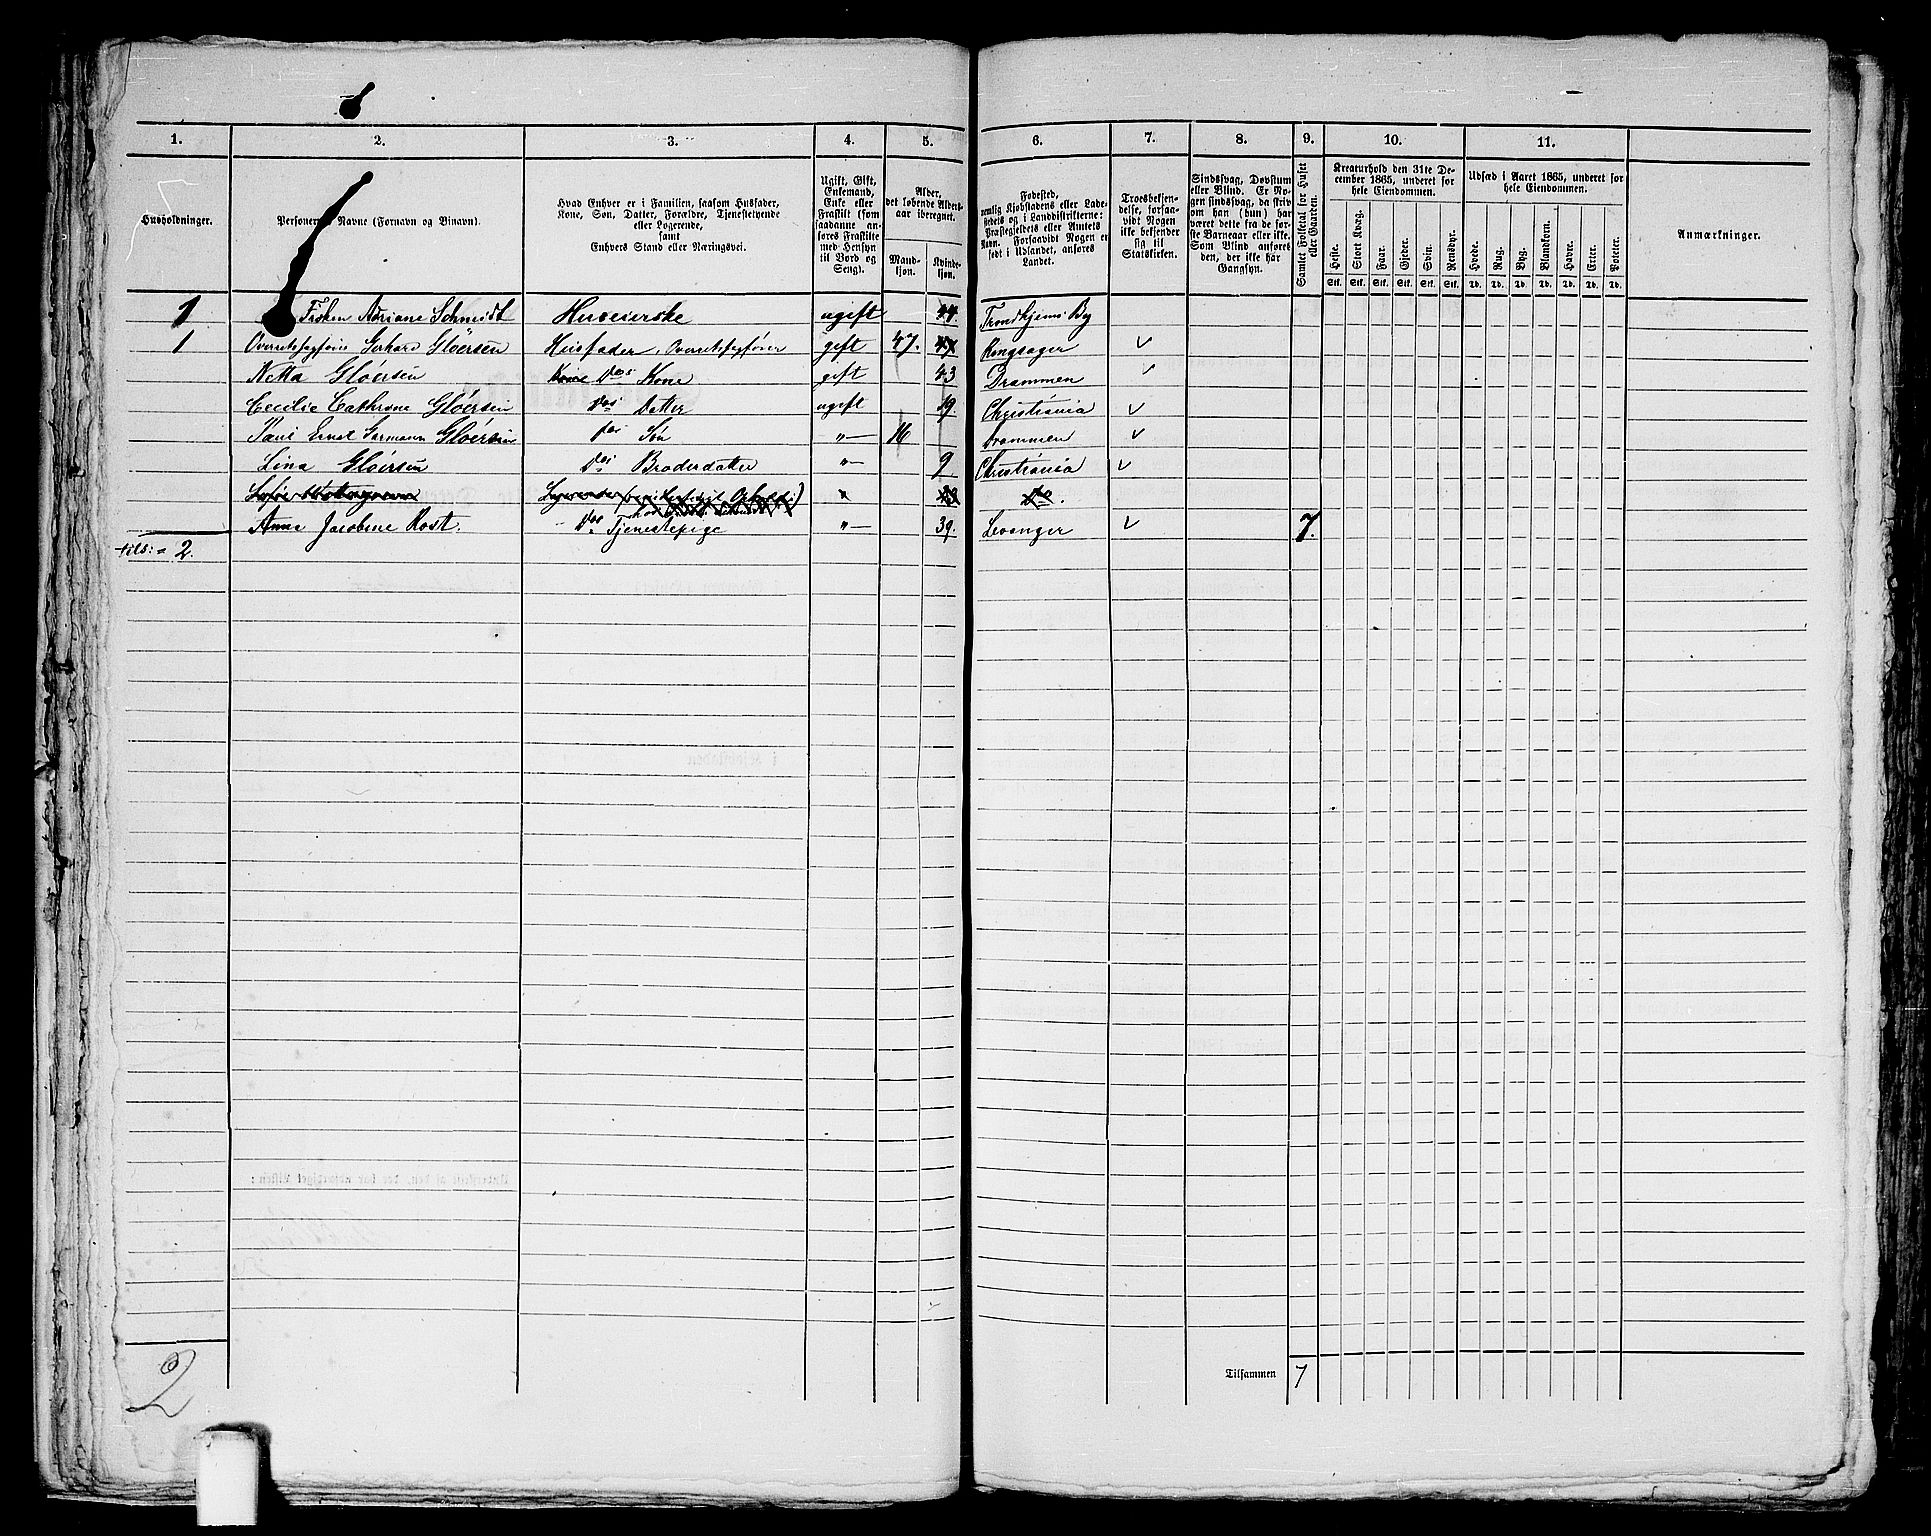 1. 2. 3. 4. 5. 6. 7. 8. 9. 10. 11.
Husholdninger.
Personernes Navne (Fornavn og Binavn).
Hvad Enhver er i Familien, saasom Husfader,
Kone, Søn, Datter, Forældre, Tjenestetyende
eller Logerende,
samt
Enhvers Stand eller Næringsvei.
Ugift, Gift,
Enkemand,
Enke eller
Fraskilt (som
saadanne an-
føres Fraskilte
med Hensyn
til Bord og
Seng).
Alder,
det løbende Alders-
aar iberegnet.
Mand-
kjøn.
Kvinde-
kjøn.
Fødested,
nemlig Kjøbstadens eller Lade-
stedets og i Landdistrikterne:
Præstegjeldets eller Amtets
Navn. Forsaavidt Nogen er
født i Udlandet, anføres
Landet.
Troesbekjen-
delse, forsaa-
vidt Nogen
ikke bekjender
sig til
Statskirken.
Sindssvag, Døvstum
eller Blind. Er No-
gen sindssvag, da skriv
om han (hun) har
været dette fra de før-
ste Barneaar eller ikke.
Som Blind anføres
den, der ikke har
Gangsyn.
Samlet Folketal for Huset
eller Gaarden.
Kreaturhold den 31te De-
cember 1865, underet for
hele Eiendommen.
Heste. Stort Kvæg. Faar. Gjeder. Svin. Rensdyr.
Stk. Stk. Stk. Stk. Stk. Stk.
Udsæd i Aaret 1865, underet for
hele Eiendommen.
Hvede. Rug. Byg. Blandkorn. Havre. Erter. Poteter.
Td. Td. Td. Td. Td. Td. Td.
Anmærkninger.
1 Adriane Schmidt Huseierske ugift 44. Trondhjems By
1 Overretssagfører Gerhard Gløersen Husfader, Overretssagfører gift 47. Ringsager ✓
Netta Gløersen Kone Do s Kone gift 43 Drammen ✓
Cecilie Cathrine Gløersen Do s Datter ugift 19. Christiania ✓
Paul Ernst Garmann Gløersen Do s Søn "— 16 Drammen ✓
Lina Gløersen Do s Broderdatter "— 9 Christiania ✓
Logerende " Do.
Anna Jacobine Rost. Do s Tjenestepige "— 39. Levanger ✓ 7.
tils: = 2.
2
Tilsammen 7